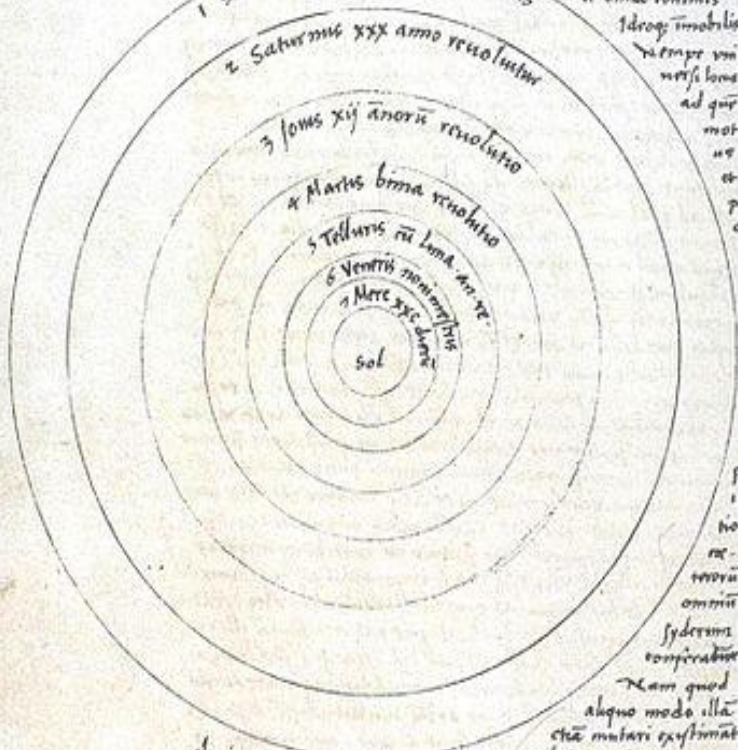 1
2 Saturnus xxx anno reuoluitur
3 Jouis xij ānorū reuolutio
4 Martis bima reuolutio
5 Telluris cū luna an. re.
6 Veneris nonimestris
7 Merc xxc dierū
Sol
Ideoqȝ īmobilis
Nempe vni
uersi locus
ad quē
mot
us
et
p
tio
ce-
terorū
omniū
syderum
conferatur
Nam quod
aliquo modo illā
etiā mutari existimāt